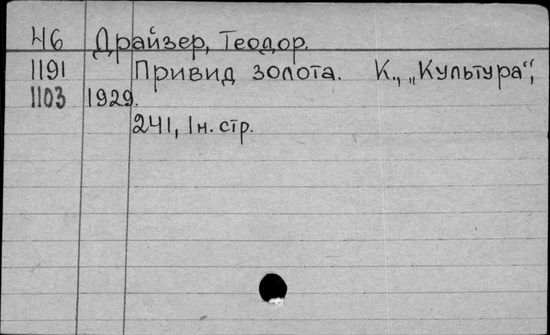 И6 Драйзер, Теодор.
1191 Привид золота. К., „Культура“,
1103 1929.
241, 1 н. стр.